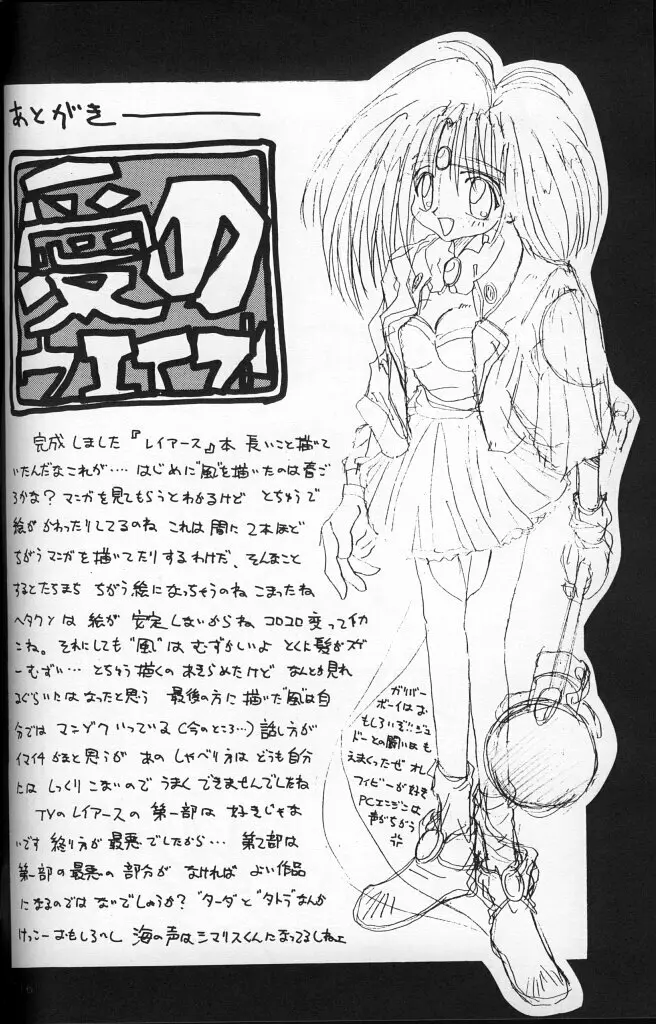 あとがき
愛の
完成しました『レイアース』本 長いこと描いて
いたんだなこれが…‥ はじめに"風"を描いたのは春ご
ろかな？マンガを見てもらうとわかるけど とちゅうで
絵が かわったりしてるのね これは間に2本ほど
ちがうマンガを描いてたりするわけだ、そんなこと
するとたちまち ちがう絵になっちゃうのね こまったね
ヘタクソは 絵が 安定しないからね コロコロ変って
こね。それにしても"風"はむずかしいよ とくに髪がスゲ
ーむずい… とちゅう描くのあきらめたけど なんとか見れ
るぐらいにはなったと思う 最後の方に描いた"風"は自
分では マンゾクいっている(今のところ…) 話し方が
イマイチかなと思うが あの しゃべり方は どうも自分
には しっくりこないので うまく できませんでしたね
TVのレイアースの 第一部は 好きじゃな
いです 終り方が最悪でしたから… 第2部は
第一部の最悪の 部分が なければ よい作品
になるのでは ないでしょうか？"ターダ"と"タトラ"なんか
けっこーおもしろいし 海の声はシマリスくんになってるしねェ
ガリバー
ボーイは
おもしろいぞ!!ジュ
ドーとの闘いはも
えまくったぜ オレ
フィビーが好き
PCエンジンは
声がちがう